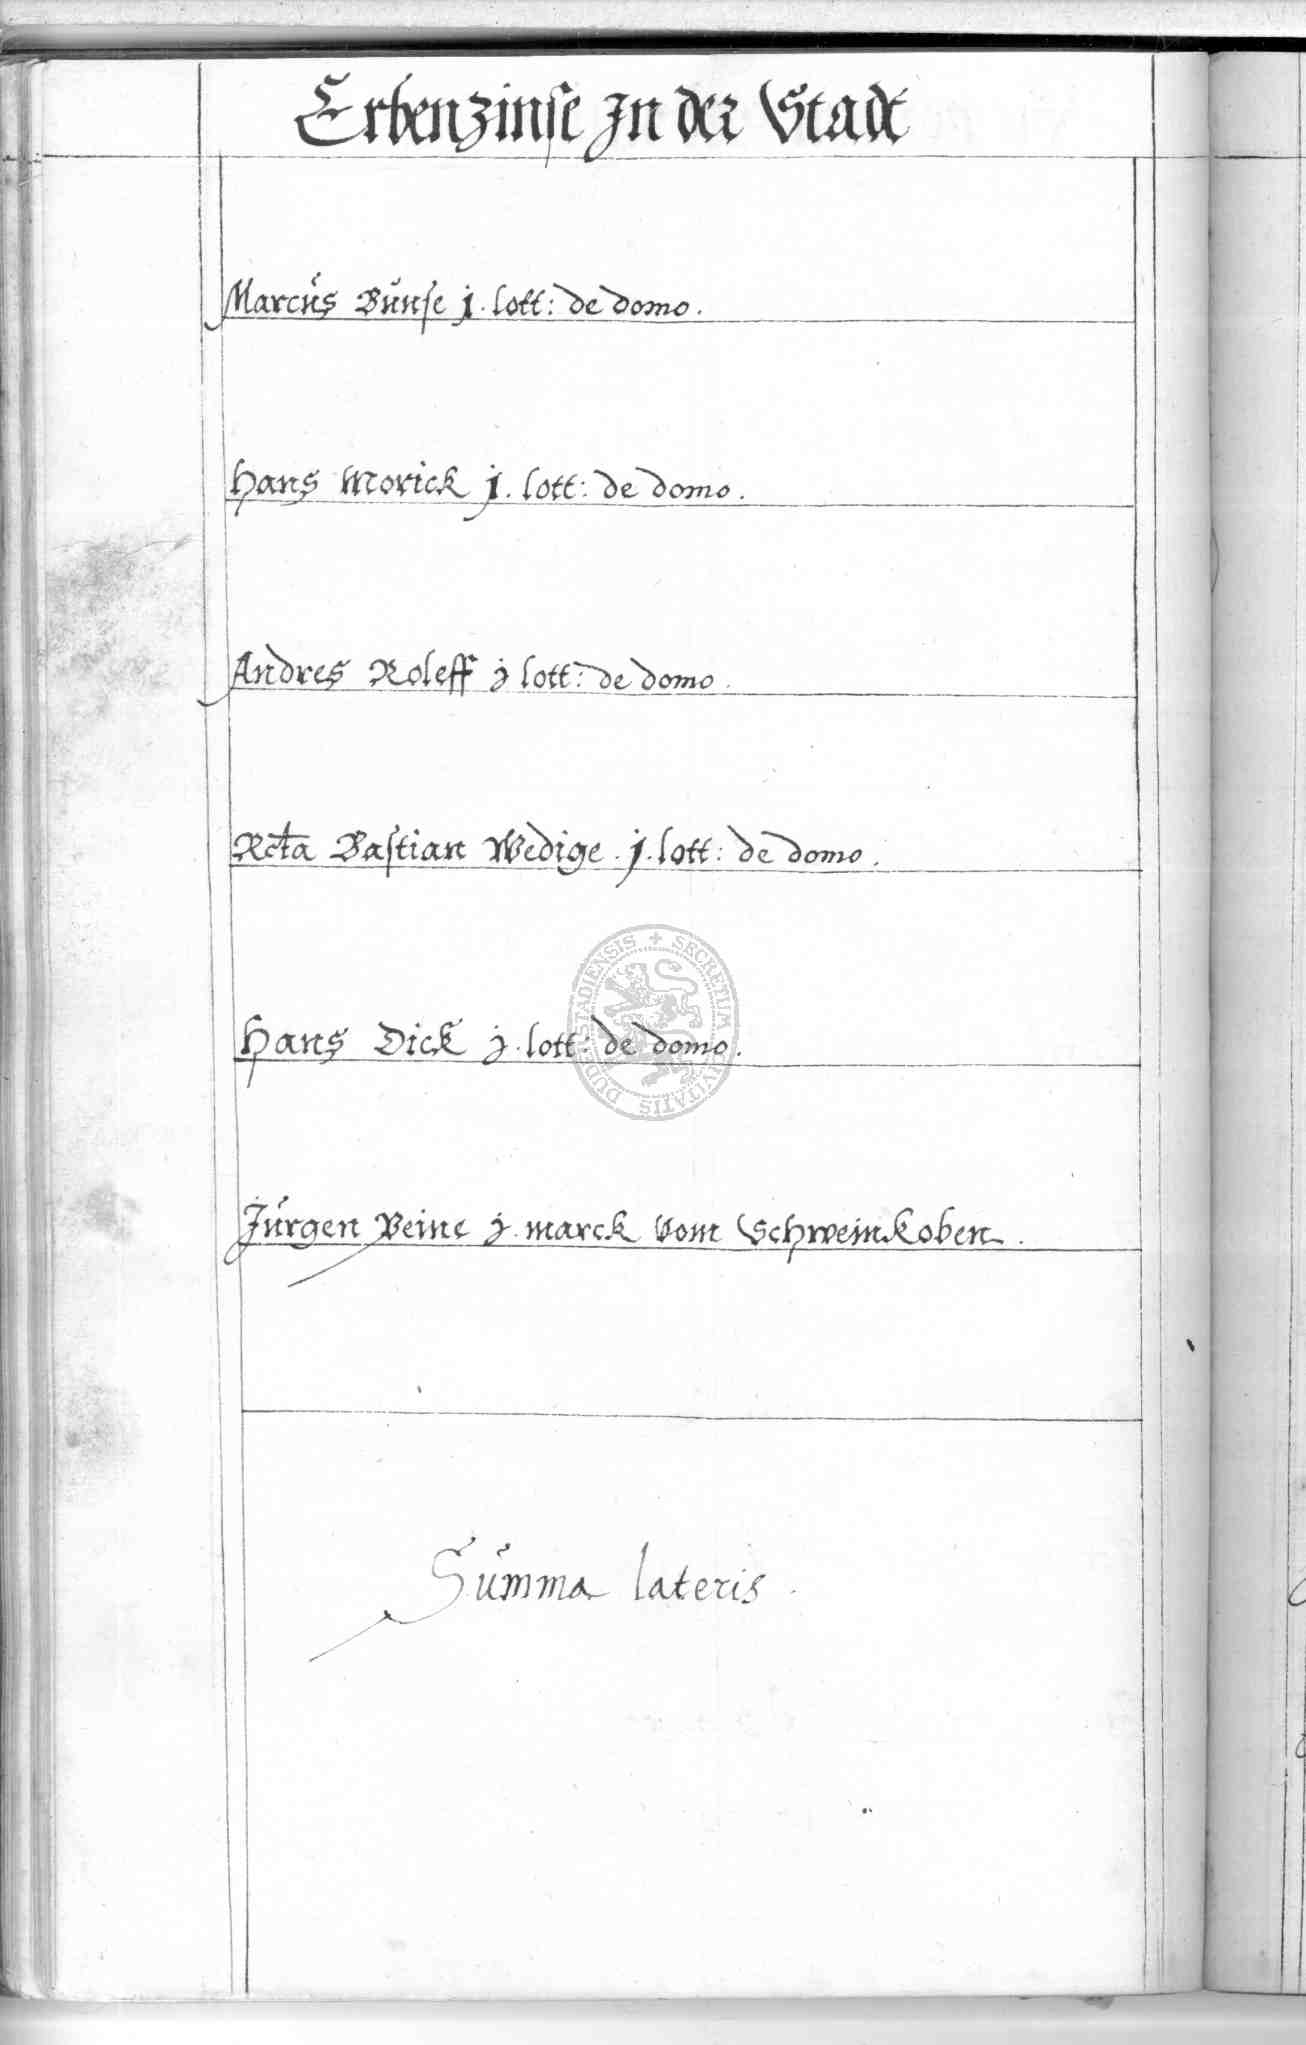 Erbenzinse jn der Stadt
Marcus Bunse j. lott: de domo.
Hans Morick j. lott: de domo.
Andres Roleff j lott: de domo.
Rcta Bastian Wedige. j. lott: de domo.
Hans Dick j. lott: de domo.
Jurgen Beine j. marck vom Schweinkoben.
Summa lateris.
SECRETUM CIVITATIS DUDERSTADIENSIS